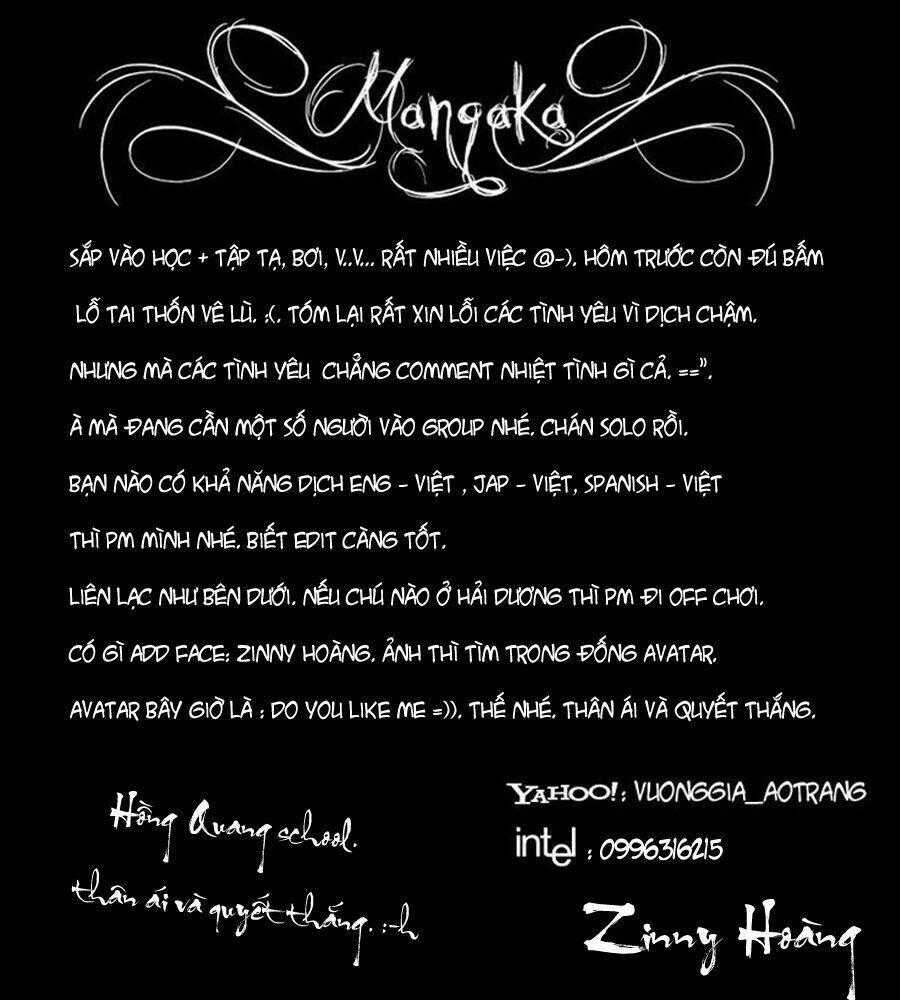 Mangaka
SẮP VÀO HỌC + TẬP TẠ, BƠI, V..V... RẤT NHIỀU VIỆC @-). HÔM TRƯỚC CÒN ĐÚ BẤM
LỖ TAI THỐN VÊ LÙ. :(. TÓM LẠI RẤT XIN LỖI CÁC TÌNH YÊU VÌ DỊCH CHẬM.
NHƯNG MÀ CÁC TÌNH YÊU CHẲNG COMMENT NHIỆT TÌNH GÌ CẢ. ==".
À MÀ ĐANG CẦN MỘT SỐ NGƯỜI VÀO GROUP NHÉ. CHÁN SOLO RỒI.
BẠN NÀO CÓ KHẢ NĂNG DỊCH ENG - VIỆT , JAP - VIỆT, SPANISH - VIỆT
THÌ PM MÌNH NHÉ. BIẾT EDIT CÀNG TỐT.
LIÊN LẠC NHƯ BÊN DƯỚI. NẾU CHÚ NÀO Ở HẢI DƯƠNG THÌ PM ĐI OFF CHƠI.
CÓ GÌ ADD FACE: ZINNY HOÀNG. ẢNH THÌ TÌM TRONG ĐỐNG AVATAR.
AVATAR BÂY GIỜ LÀ : DO YOU LIKE ME =)). THẾ NHÉ. THÂN ÁI VÀ QUYẾT THẮNG.
YAHOO!: VUONGGIA_AOTRANG
intel : 0996316215
Hồng Quang school.
thân ái và quyết thắng. :-h
Zinny Hoàng